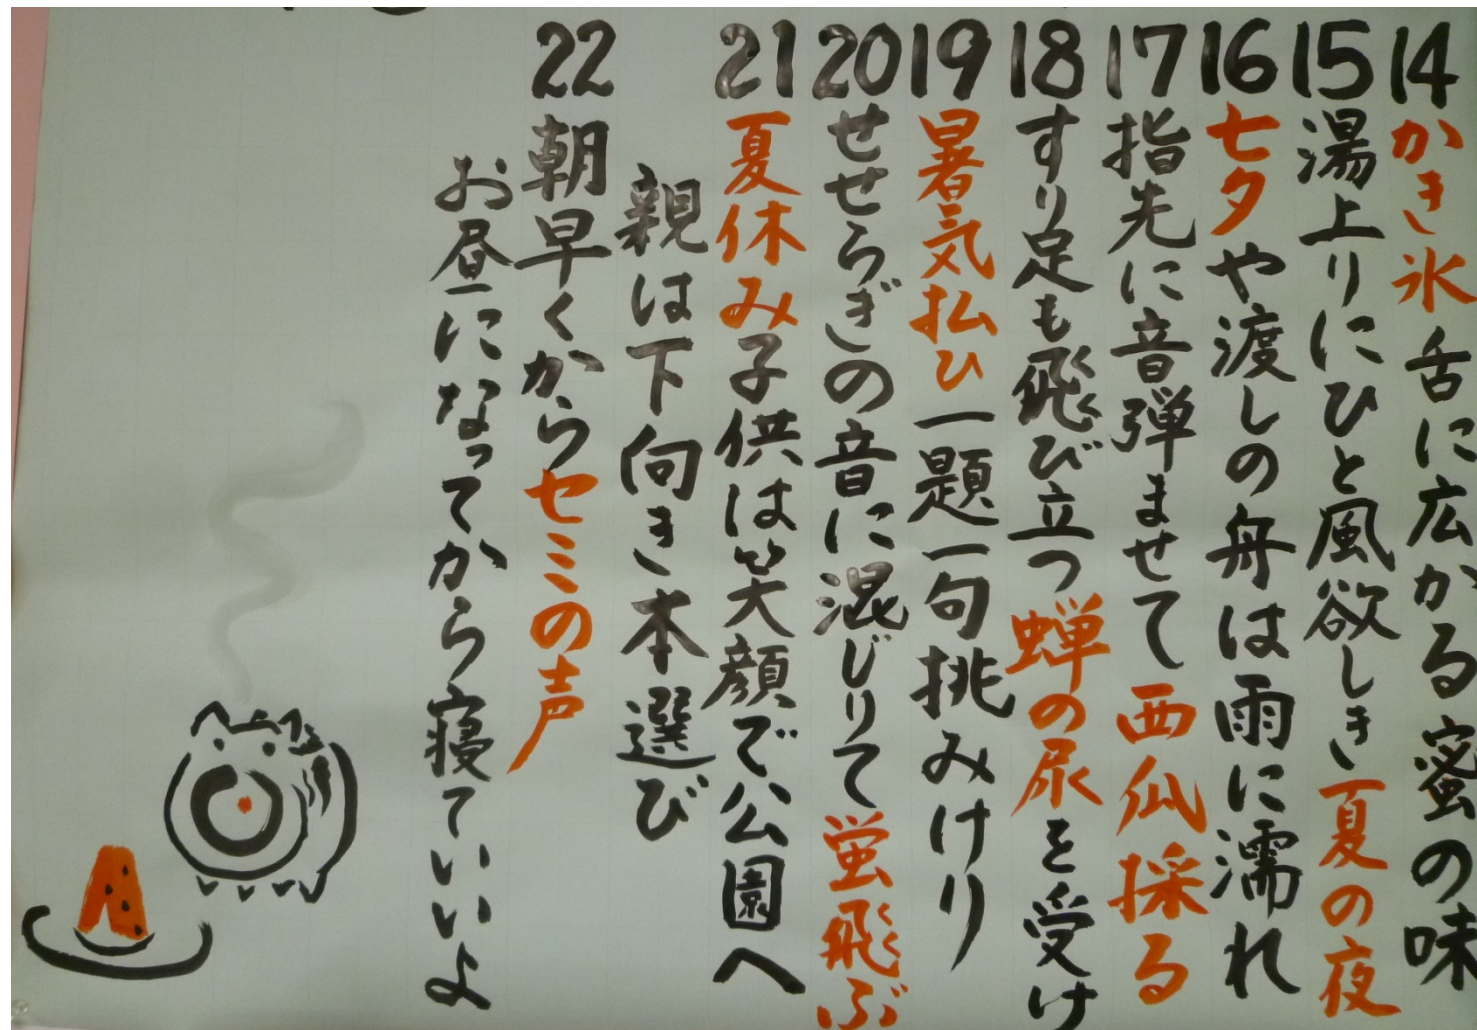 14かき氷舌に広かる蜜の味
15湯上りにひと風欲しき夏の夜
16七夕や渡しの舟は雨に濡れ
17指先に音弾ませて西瓜採る
18すり足も飛び立つ蝉の尿を受け
19暑気払ひ一題一句挑みけり
20せせらぎの音に混じりて蛍飛ぶ
21夏休み子供は笑顔で公園へ
親は下向き本選び
22朝早くからセミの声
お昼になってから寝ていいよ